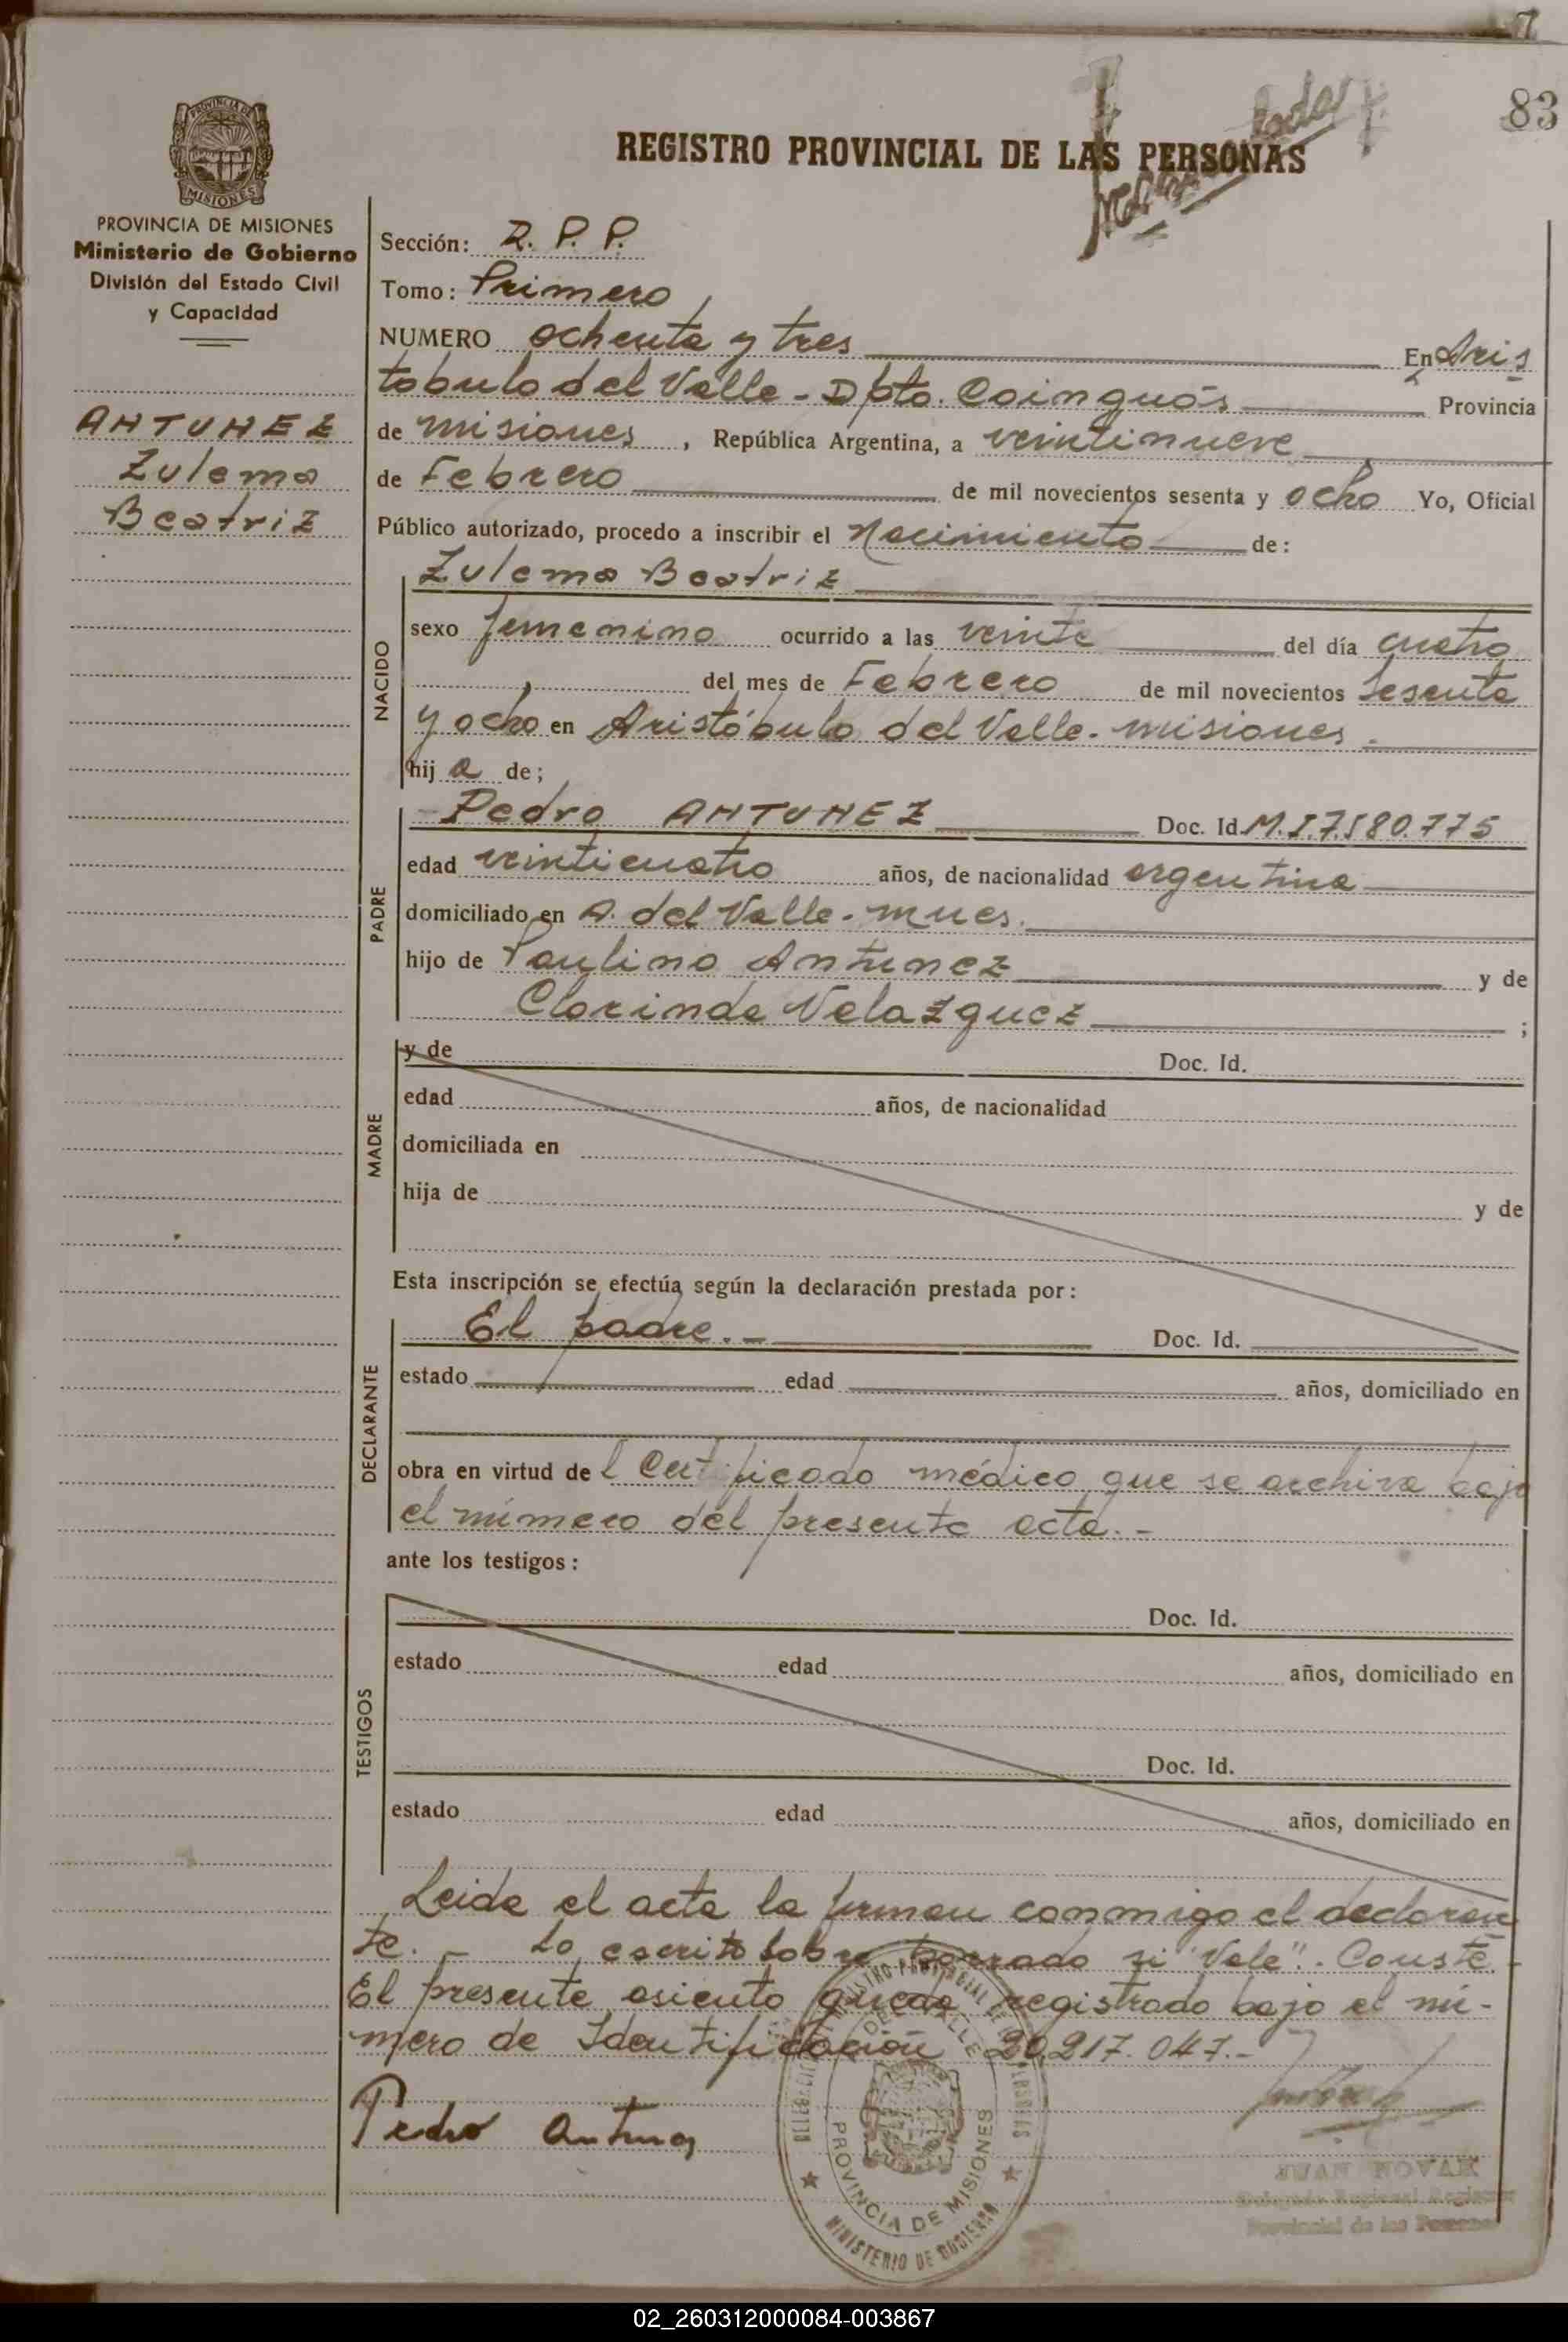 7
83
REGISTRO PROVINCIAL DE LAS PERSONAS
PROVINCIA DE MISIONES
Ministerio de Gobierno
División del Estado Civil
y Capacidad
ANTUNEZ
Zulema
Beatriz
Sección: R. P. P.
Tomo: Primero
NUMERO ochenta y tres En Aris
tobulo del Valle - Dpto. Cainguás Provincia
de misiones, República Argentina, a veintinueve
de Febrero de mil novecientos sesenta y ocho Yo, Oficial
Público autorizado, procedo a inscribir el Nacimiento de:
NACIDO
Zulema Beatriz
sexo femenino ocurrido a las veinte del día cuatro
del mes de Febrero de mil novecientos sesenta
y ocho en Aristóbulo del Valle - misiones.
hij a de;
PADRE
Pedro ANTUNEZ Doc. Id. M.I.7.580.775
edad veinticuatro años, de nacionalidad argentina
domiciliado en A. del Valle - mnes.
hijo de Paulino Antunez y de
Clorinda Velazquez ;
MADRE
y de Doc. Id.
edad años, de nacionalidad
domiciliada en
hija de y de
Esta inscripción se efectúa según la declaración prestada por:
DECLARANTE
El padre. - Doc. Id.
estado edad años, domiciliado en
obra en virtud de l Certificado médico que se archiva bajo
el número del presente acta. -
ante los testigos:
TESTIGOS
Doc. Id.
estado edad años, domiciliado en
Doc. Id.
estado edad años, domiciliado en
Leida el acta la firman conmigo el declaran
te. - Lo escrito sobre borrado si "Vale". Conste.
El presente asiento queda registrado bajo el nú-
mero de Identificación 20.217.047.-
Pedro Antunez
PROVINCIA DE MISIONES
MINISTERIO DE GOBIERNO
Delegado Regional Registro
Provincial de las Personas
02_260312000084-003867